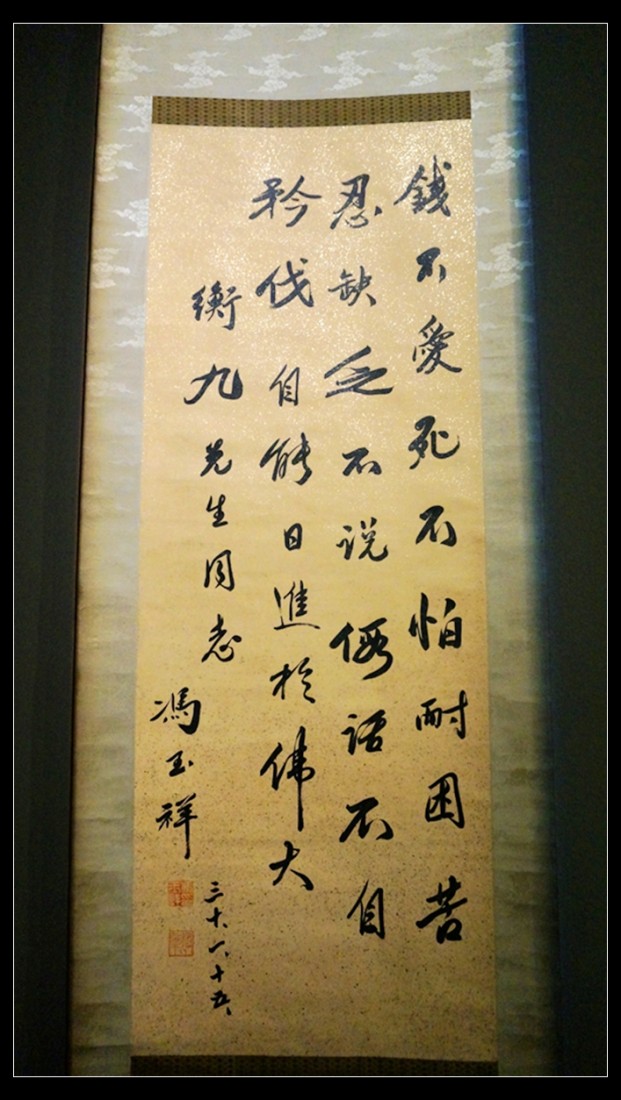 錢不愛死不怕耐困苦
忍缺乏不说假话不自
矜伐自能日進於偉大
衡九先生同志
馮玉祥
三十、一、十五、